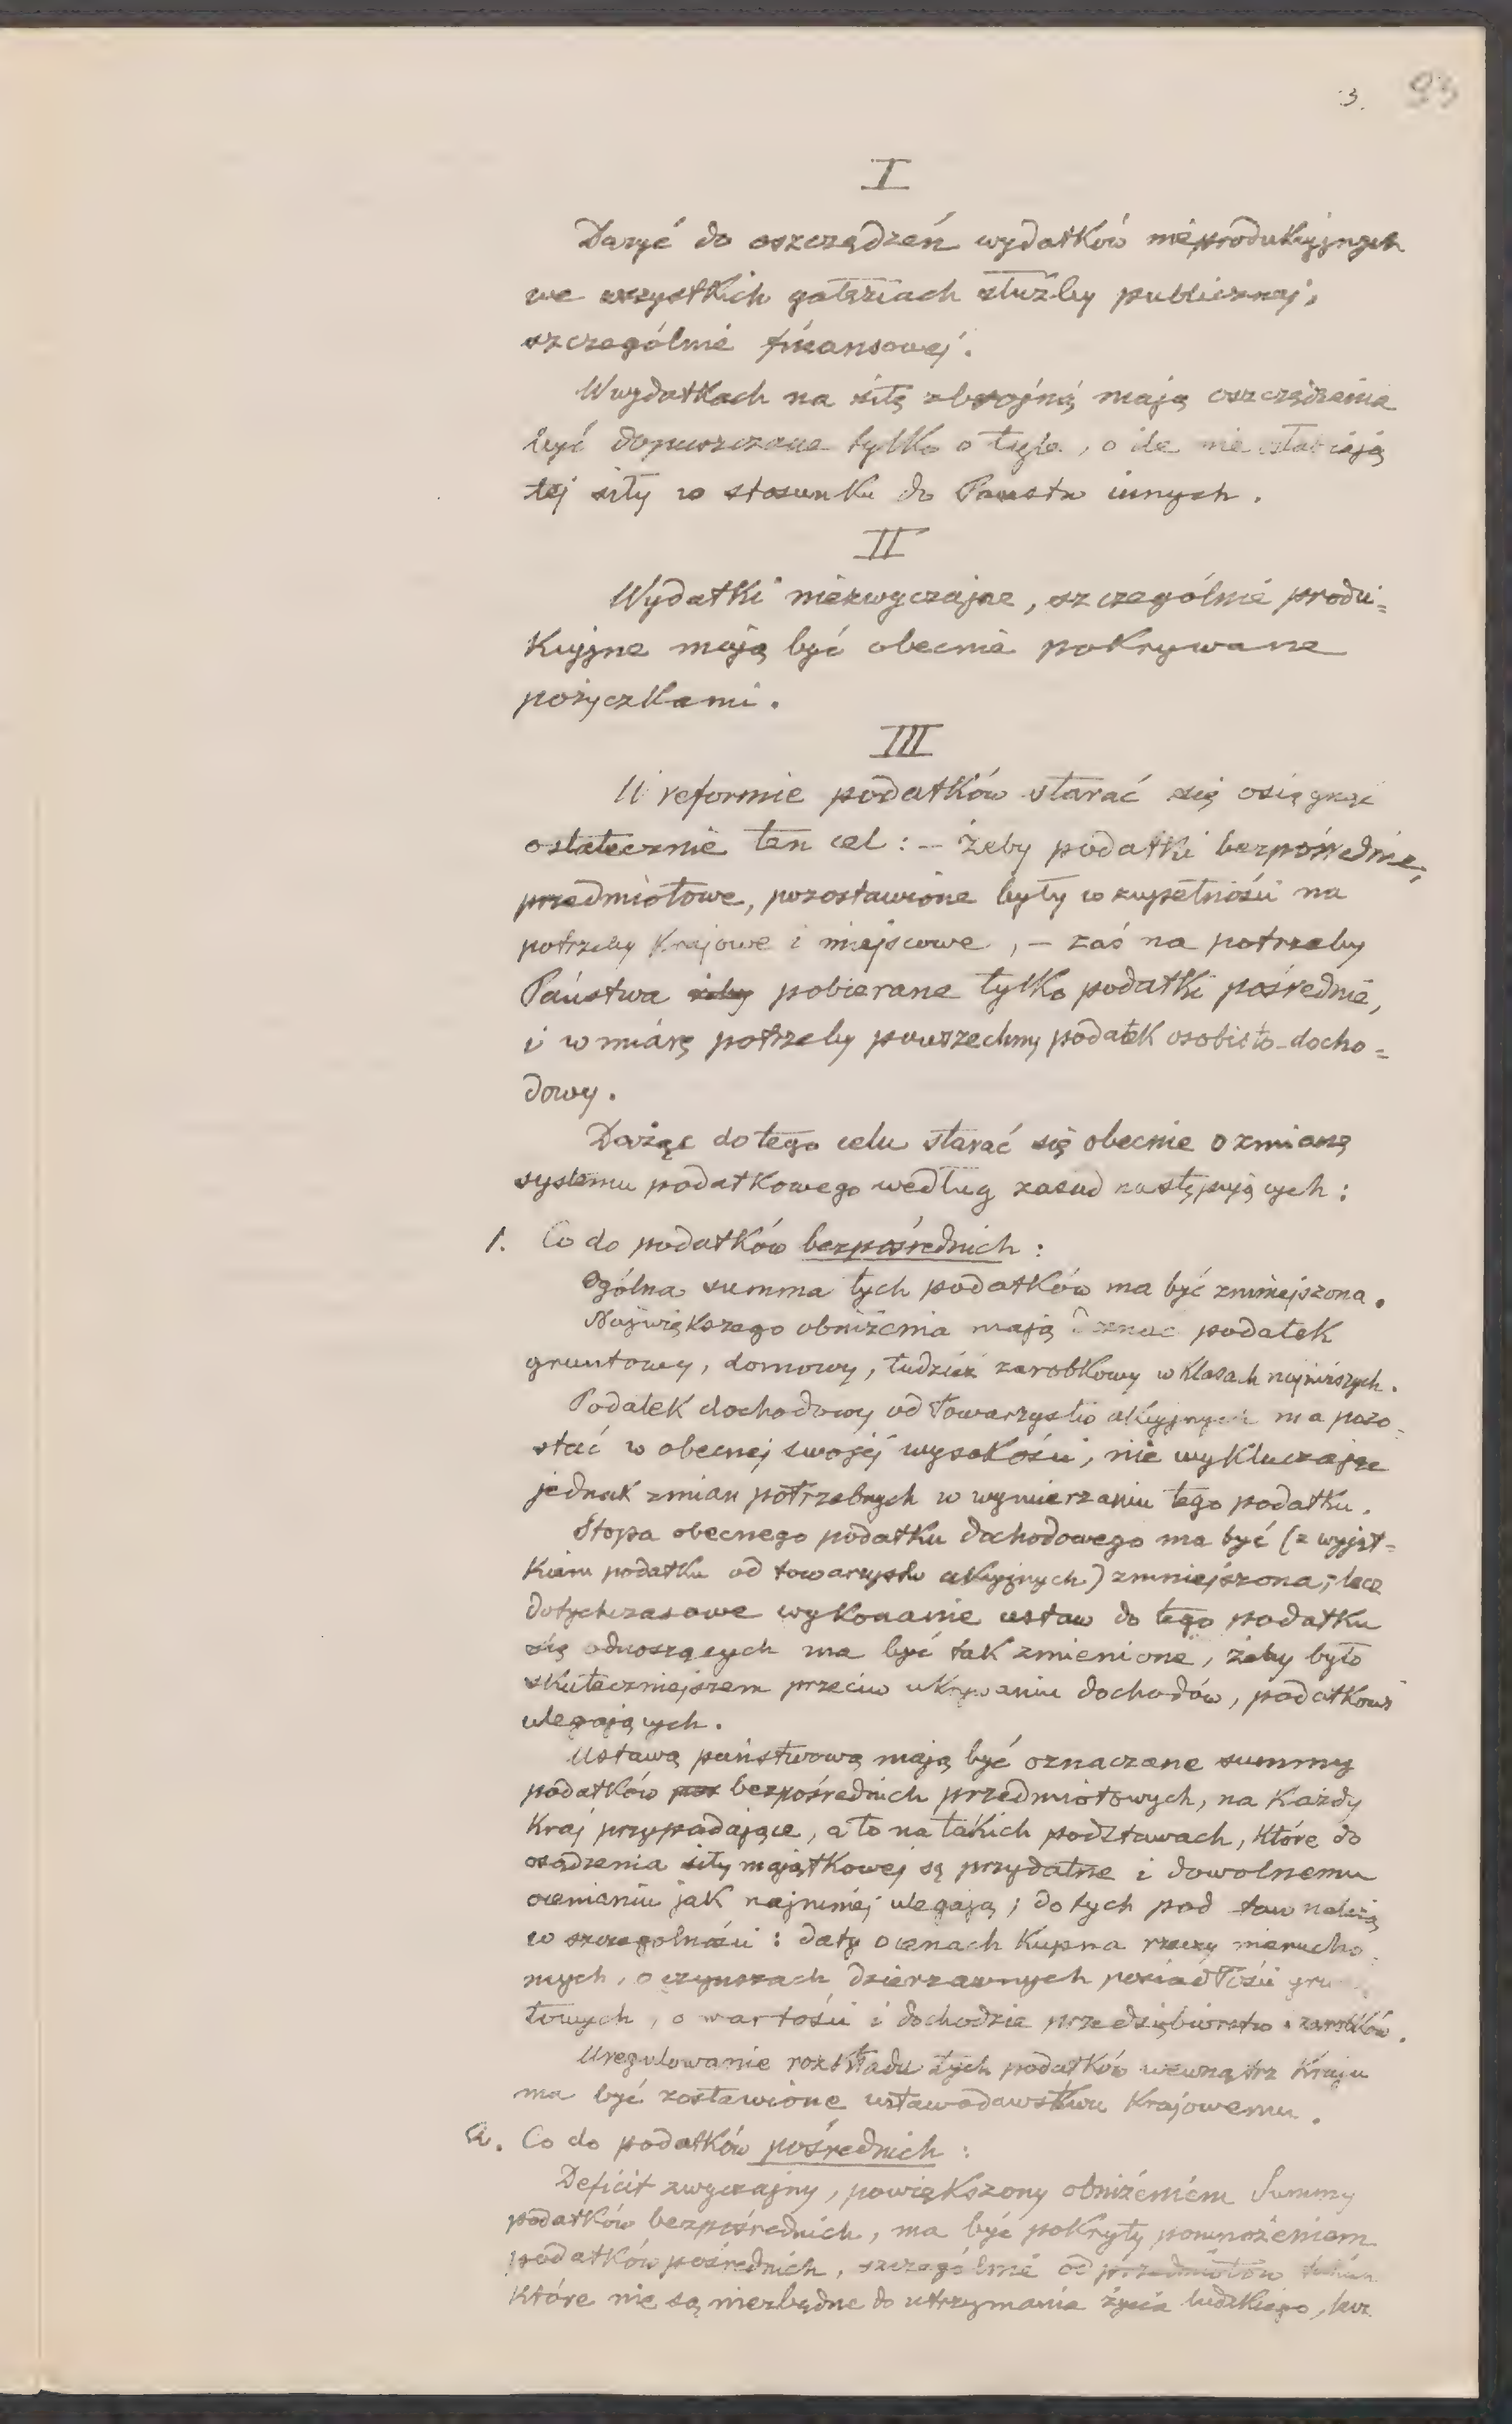 3. 93
I
Dążyć do oszczędzeń wydatków nieprodukcyjnych
we wszystkich gałęziach służby publicznej,
szczególnie finansowej.
W wydatkach na siłę zbrojną mają oszczędzenia
być dopuszczane tylko o tyle, o ile nie osłabiają
tej siły w stosunku do Państw innych.
II
Wydatki niezwyczajne, szczególnie produ=
kcyjne mają być obecnie pokrywane
pożyczkami.
III
W reformie podatków starać się osiągnąć
ostatecznie ten cel: – żeby podatki bezpośrednie,
przedmiotowe, pozostawione były w zupełności na
potrzeby krajowe i miejscowe, – zaś na potrzeby
Państwa żeby pobierane tylko podatki pośrednie,
i w miarę potrzeby powszechny podatek osobisto-docho=
dowy.
Dążąc do tego celu starać się obecnie o zmianę
systemu podatkowego według zasad następujących:
1. Co do podatków bezpośrednich:
Ogólna summa tych podatków ma być zmniejszona.
Największego obniżenia mają doznać podatek
gruntowy, domowy, tudzież zarobkowy w klasach najniższych.
Podatek dochodowy od Towarzystw akcyjnych ma pozo=
stać w obecnej swojej wysokości, nie wykluczając
jednak zmian potrzebnych w wymierzaniu tego podatku.
Stopa obecnego podatku dochodowego ma być (z wyjąt=
kiem podatku od towarzystw akcyjnych) zmniejszona; lecz
dotychczasowe wykonanie ustaw do tego podatku
się odnoszących ma być tak zmienione, żeby było
skuteczniejszem przeciw ukrywaniu dochodów, podatkowi
ulegających.
Ustawą państwową mają być oznaczane summy
podatków pos bezpośrednich przedmiotowych, na każdy
kraj przypadające, a to na takich podstawach, które do
osądzenia siły majątkowej są przydatne i dowolnemu
ocenianiu jak najmniej ulegają; do tych podstaw należą
w szczególności: daty o cenach kupna rzeczy nierucho=
mych, o czynszach dzierżawnych posiadłości grun
towych, o wartości i dochodzie przedsiębiorstw i zarobków.
Uregulowanie rozkładu tych podatków wewnątrz kraju
ma być zostawione ustawodawstwu krajowemu.
2. Co do podatków pośrednich:
Deficit zwyczajny, powiększony obniżeniem Summy
podatków bezpośrednich, ma być pokryty pomnożeniem
podatków pośrednich, szczególnie od przedmiotów takich
które nie są niezbędne do utrzymania życia ludzkiego, lecz